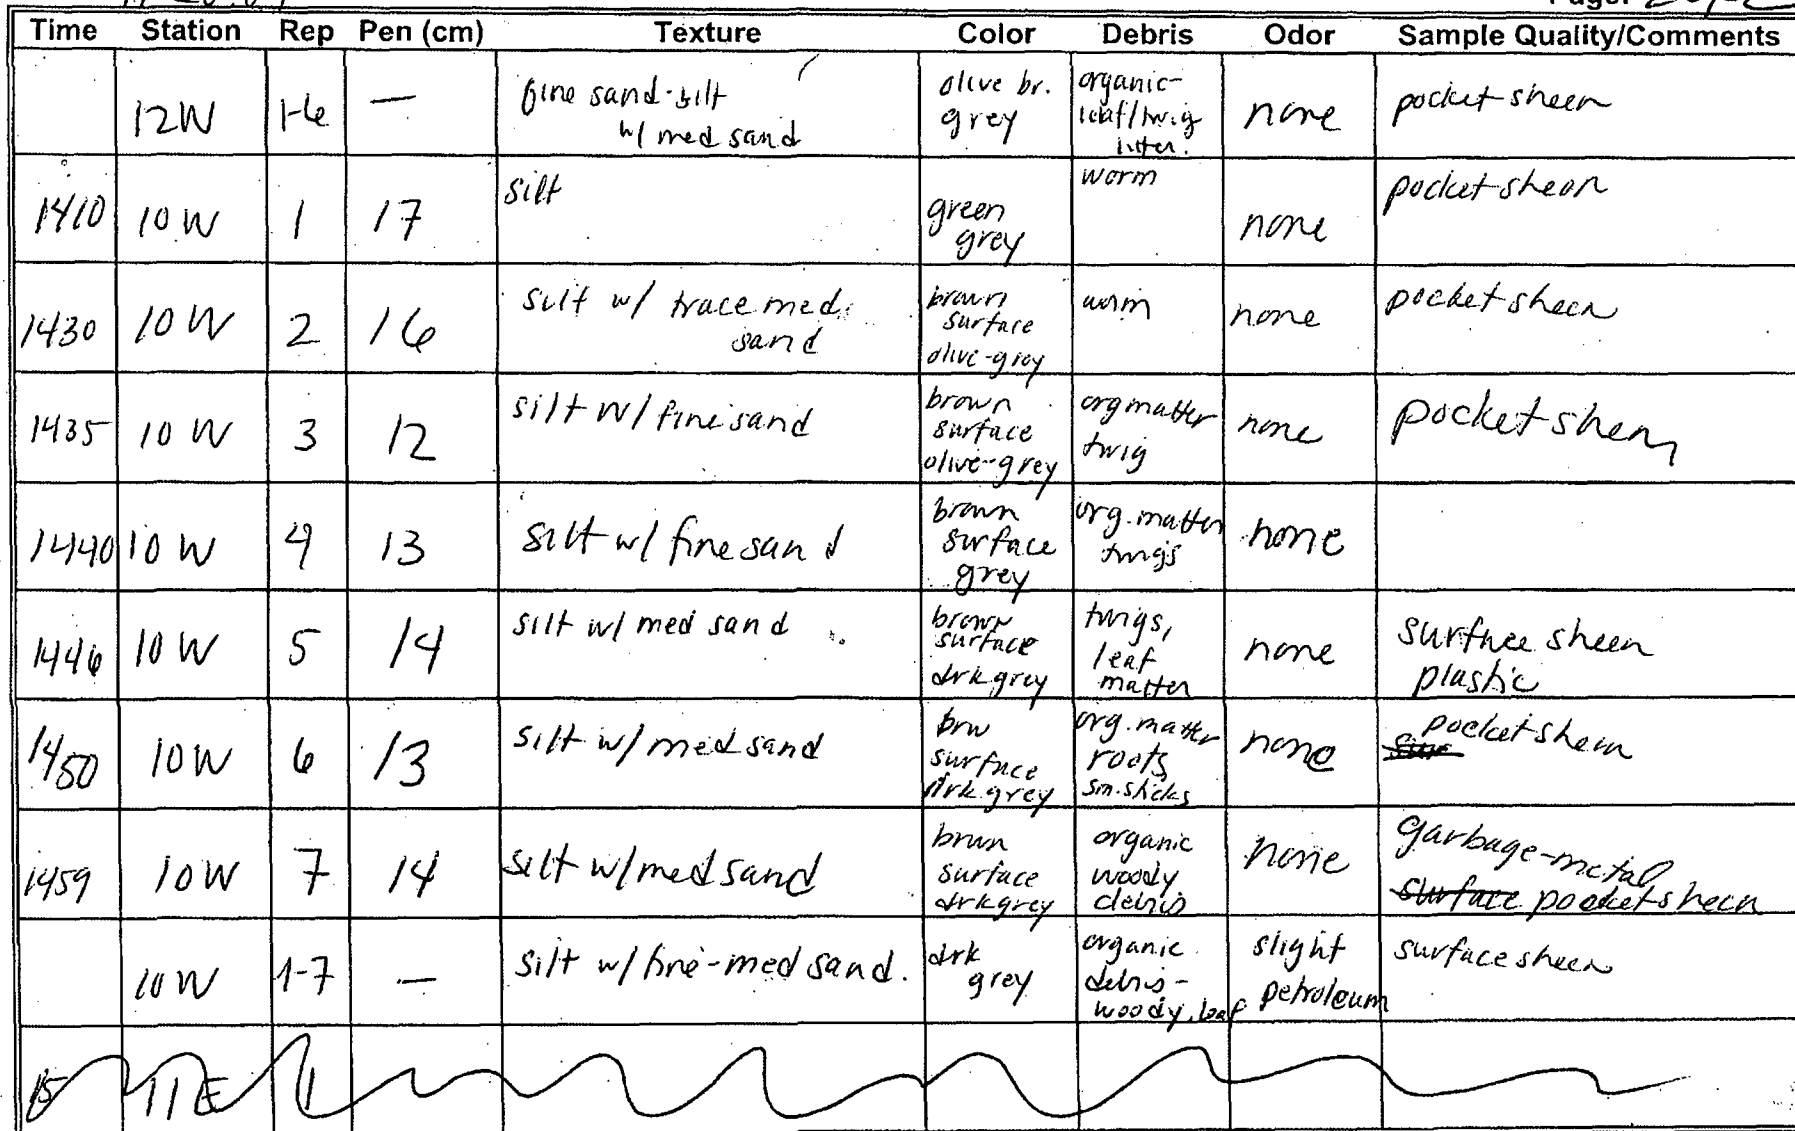 Time Station Rep Pen (cm) Texture Color Debris Odor Sample Quality/Comments
12W 1-6 — fine sand-silt w/ med sand olive br. grey organic- leaf/twig litter. none pocket sheen
1410 10 W 1 17 silt green grey worm none pocket sheen
1430 10 W 2 16 silt w/ trace med. sand brown surface olive-grey worm none pocket sheen
1435 10 W 3 12 silt w/ fine sand brown surface olive-grey org matter twig none pocket sheen
1440 10 W 4 13 silt w/ fine sand brown surface grey org. matter twigs none
1446 10 W 5 14 silt w/ med sand brown surface drk grey twigs, leaf matter none surface sheen plastic
1450 10W 6 13 silt w/ med sand brw surface drk grey org. matter roots sm. sticks none pocket sheen
1459 10W 7 14 silt w/ med sand brwn surface drk grey organic woody debris none garbage-metal surface pocket sheen
10 W 1-7 — silt w/ fine-med sand. drk grey organic debris- woody, leaf slight petroleum surface sheen
15 11E 1